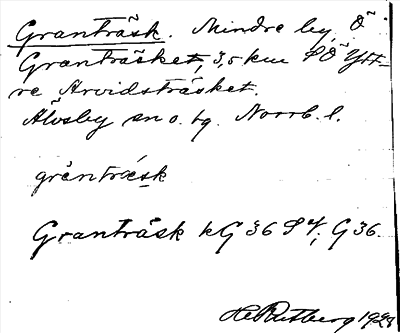 Granträsk. Mindre by, Ö
Granträsket, 3,5 km SÖ Ytt-
re Arvidsträsket.
Älvsby sn o. tg. Norrb. l.
grântræsk
Granträsk kG 36 S 4, G 36.
H Rutberg 1928